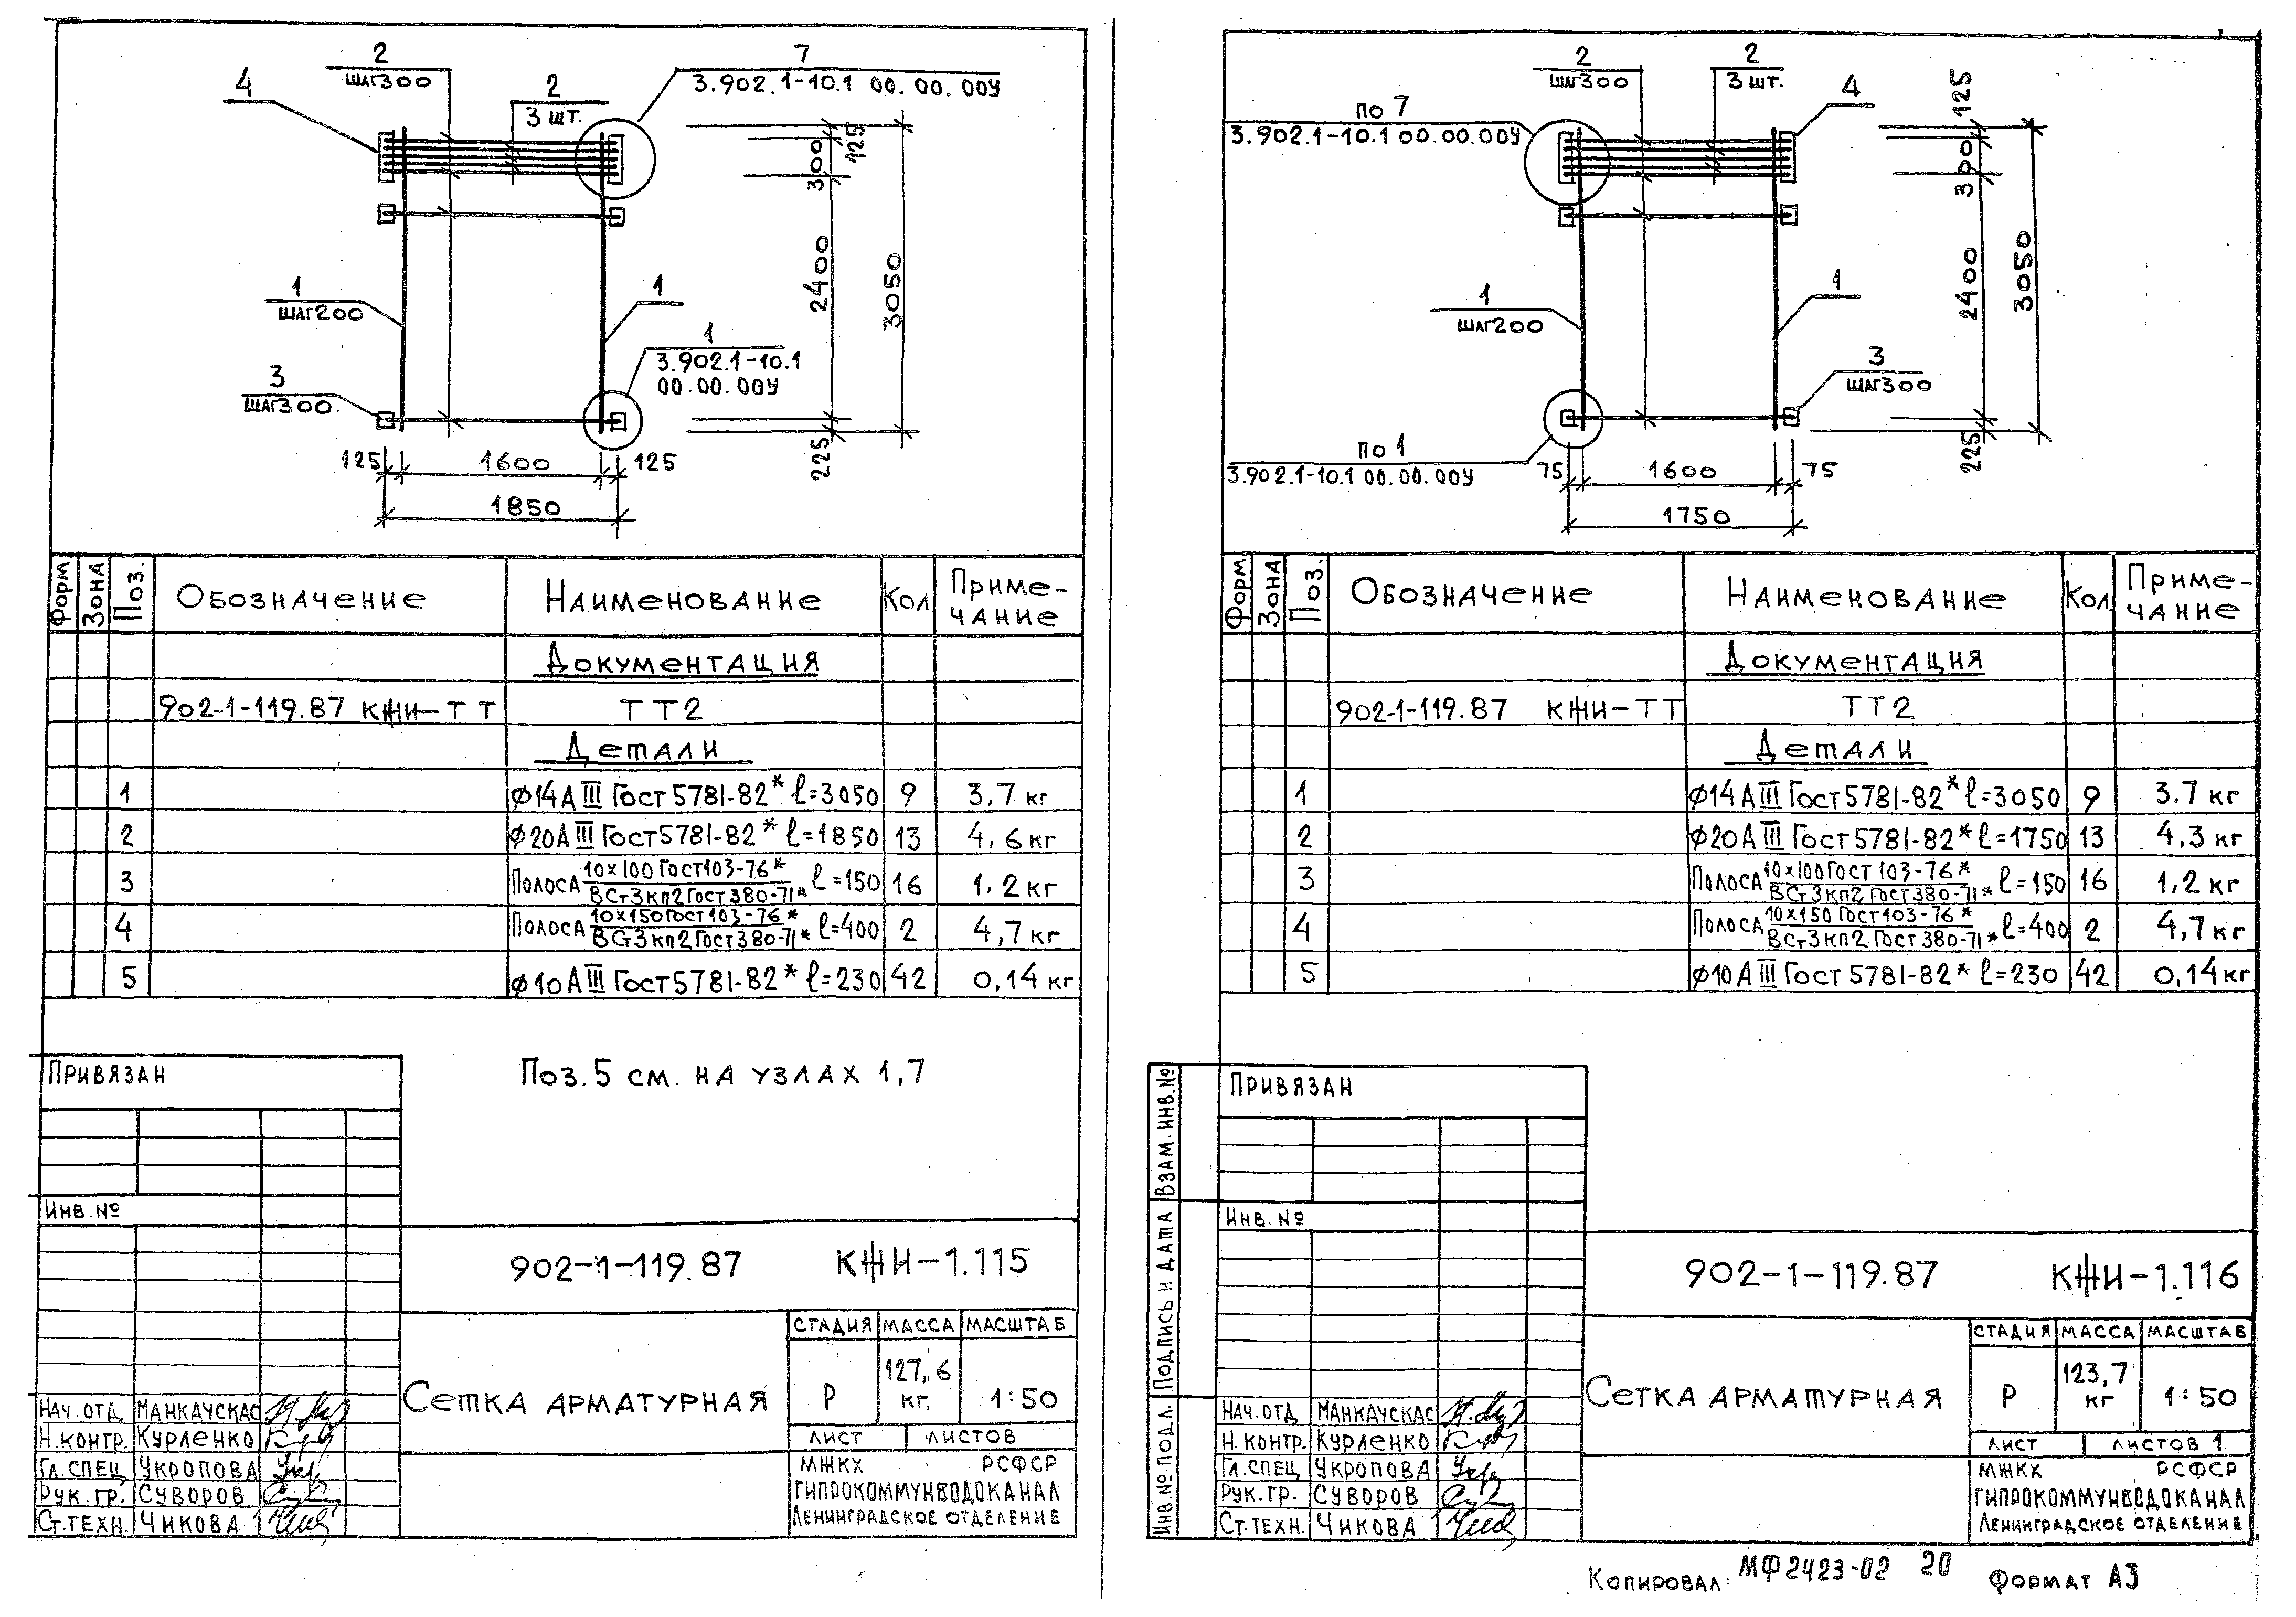 2
ШАГ300
4
2
3 ШТ.
7
3.902.1-10.1 00.00.00У
125
300
2400
3050
225
1
ШАГ200
1
1
3.902.1-10.1
00.00.00У
3
ШАГ300
125 1600 125
1850
Форм Зона Поз. Обозначение Наименование Кол Приме-
чание
Документация
902-1-119.87 КЖИ-ТТ ТТ2
Детали
1 Ф14АIII Гост 5781-82* ℓ=3050 9 3,7 кг
2 Ф20АIII Гост 5781-82* ℓ=1850 13 4,6 кг
3 Полоса 10х100 Гост 103-76* / ВСт3кп2 Гост 380-71* ℓ=150 16 1,2 кг
4 Полоса 10х150 Гост 103-76* / ВСт3кп2 Гост 380-71* ℓ=400 2 4,7 кг
5 Ф10АIII Гост 5781-82* ℓ=230 42 0,14 кг
Поз. 5 см. на узлах 1,7
Привязан
Инв. №
902-1-119.87 КЖИ-1.115
Сетка арматурная
Стадия Масса Масштаб
Р 127,6 кг. 1:50
Лист Листов
МЖКХ РСФСР
ГИПРОКОММУНВОДОКАНАЛ
Ленинградское отделение
Нач. отд Манкаускас
Н. контр. Курленко
Гл. спец Укропова
Рук. гр. Суворов
Ст. техн. Чикова
2
ШАГ300
2
3 шт.
4
по 7
3.902.1-10.1 00.00.00У
125
300
2400
3050
225
1
ШАГ200
1
3
ШАГ300
по 1
3.902.1-10.1 00.00.00У
75 1600 75
1750
Форм. Зона Поз. Обозначение Наименование Кол. Приме-
чание
Документация
902-1-119.87 КЖИ-ТТ ТТ2
Детали
1 Ф14АIII Гост 5781-82* ℓ=3050 9 3.7 кг
2 Ф20АIII Гост 5781-82* ℓ=1750 13 4.3 кг
3 Полоса 10х100 Гост 103-76* / ВСт3кп2 Гост 380-71* ℓ=150 16 1,2 кг
4 Полоса 10х150 Гост 103-76* / ВСт3кп2 Гост 380-71* ℓ=400 2 4,7 кг
5 Ф10АIII Гост 5781-82* ℓ=230 42 0,14 кг
Взам. инв. №
Подпись и дата
Инв. № подл.
Привязан
Инв. №
902-1-119.87 КЖИ-1.116
Сетка арматурная
Стадия Масса Масштаб
Р 123,7 кг 1:50
Лист Листов 1
МЖКХ РСФСР
ГИПРОКОММУНВОДОКАНАЛ
Ленинградское отделение
Нач. отд Манкаускас
Н. контр. Курленко
Гл. спец Укропова
Рук. гр. Суворов
Ст. техн. Чикова
Копировал: МФ2423-02 20 Формат А3